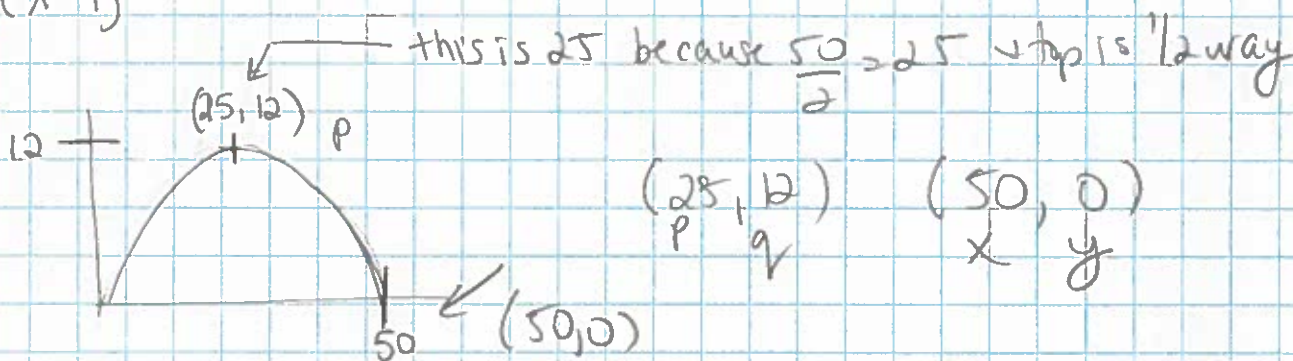 this is 25 because 50/2 = 25 & top is 1/2 way
(25, 12) p
12
(25, 12) (50, 0)
p q x y
50
(50,0)